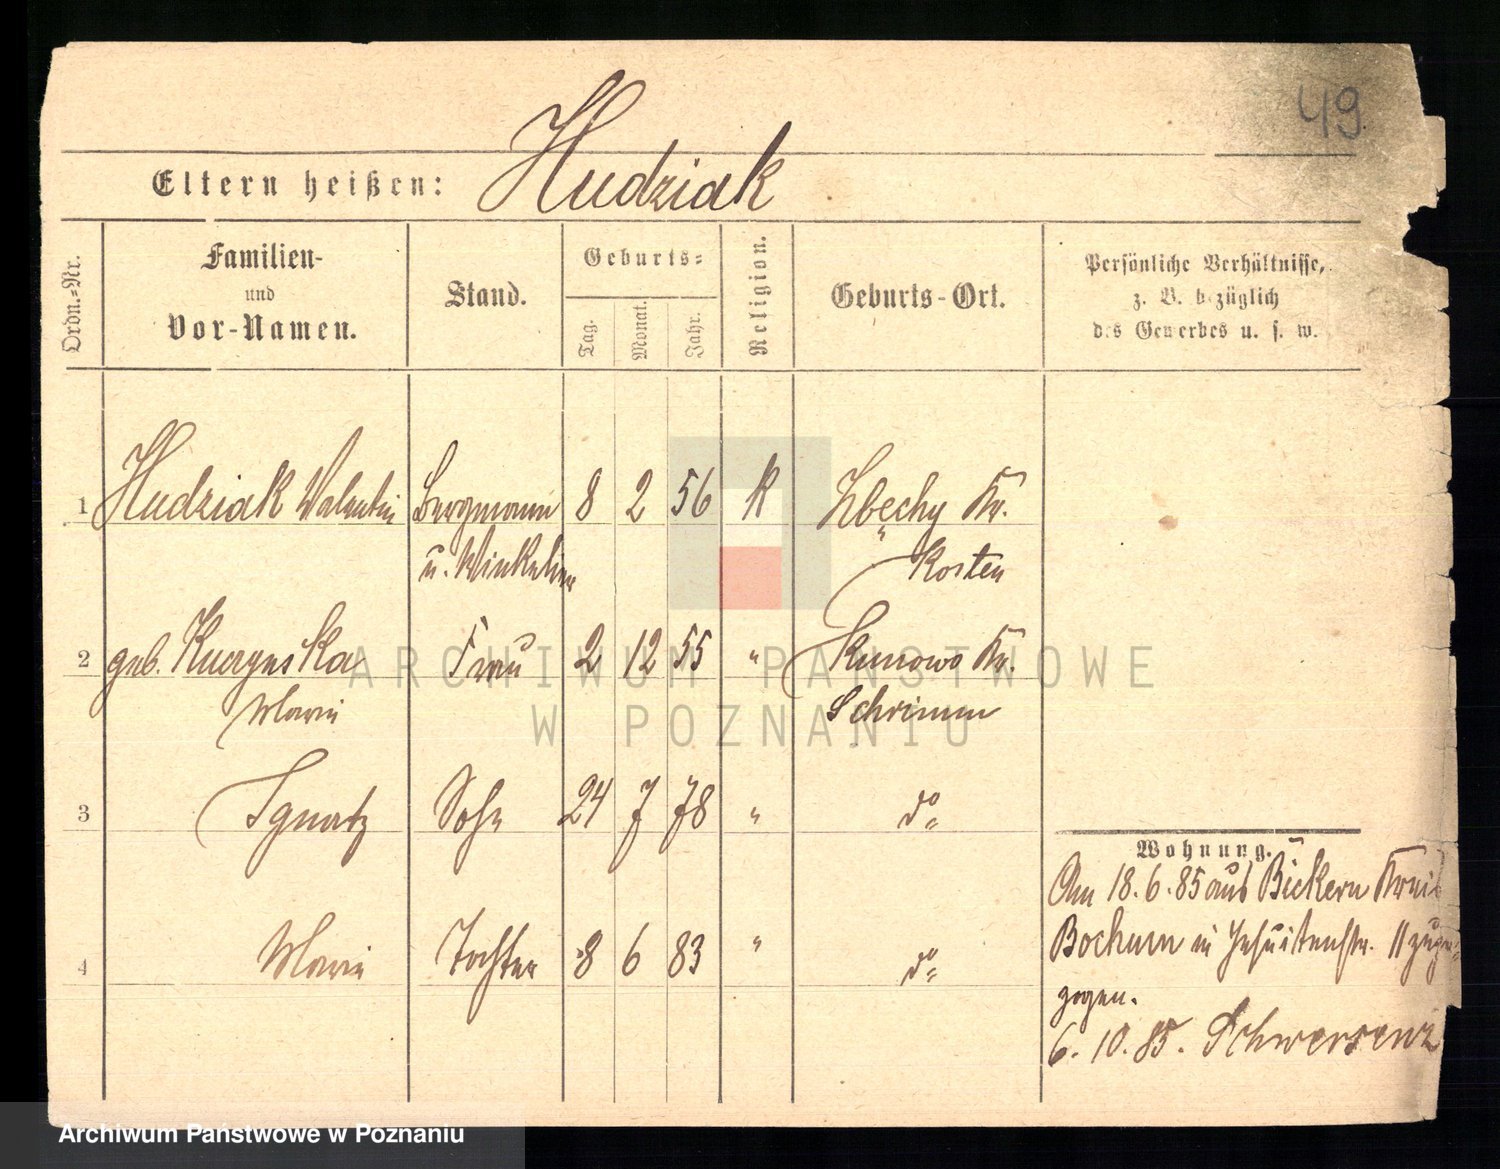 49.
Eltern heißen: Hudziak
Ordn.-Nr.
Familien-
und
Vor-Namen.
Stand.
Geburts-
Tag.
Monat.
Jahr.
Religion.
Geburts-Ort.
Persönliche Verhältnisse,
z. B. bezüglich
des Gewerbes u. s. w.
1 Hudziak Valentin Bergmann 8 2 56 K Zbęchy Kr.
u. Winkelier Kosten
2 geb. Frau 2 12 55 " Kunowo Kr.
Marie Schrimm
3 Ignatz Sohn 24 7 78 " do
4 Marie Tochter 8 6 83 " do
Wohnung.
Am 18.6.85 aus Bickern Kreis
Bochum in Jesuitenstr. 11 zuge-
zogen.
6.10.85. Schwersenz
ARCHIWUM PAŃSTWOWE
W POZNANIU
Archiwum Państwowe w Poznaniu